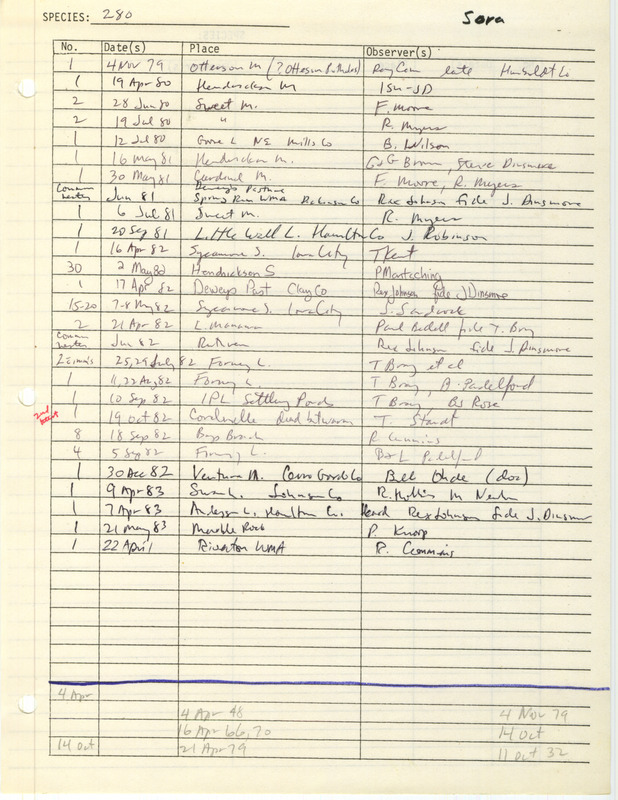 SPECIES: 280 Sora
No. Date(s) Place Observer(s)
1 4 Nov 79 Otterson M (? Ottosen Potholes) late Humboldt Co
1 19 Apr 80 Hendrickson M ISU-JD
2 28 Jun 80 Sweet M. F. Moore
2 19 Jul 80 " R. Myers
1 12 Jul 80 Grove L NE Mills Co B. Wilson
1 16 May 81 Hendrickson M. G Brown, Steve Dinsmore
1 30 May 81 Cardinal M. F. Moore, R. Myers
Common nester Jun 81 Deweys Pasture
Spring Run WMA Dickinson Co Rex Johnson fide J. Dinsmore
1 6 Jul 81 Sweet M. R. Myers
1 20 Sep 81 Little Wall L. Hamilton Co J. Robinson
1 16 Apr 82 Sycamore S. Iowa City T Kent
30 2 May 82 Hendrickson S P Martsching
1 17 Apr 82 Deweys Past Clay Co Rex Johnson fide J Dinsmore
15-20 7-8 May 82 Sycamore S. Iowa City
2 21 Apr 82 L. Manawa Paul Bedell fide T. Bray
Common nester Jun 82 Ruthven Rex Johnson fide J. Dinsmore
25, 29 July 82 Forney L. T Bray et al
1 11, 22 Aug 82 Forney L. T Bray, A. Padelford
1 10 Sep 82 IPL Settling Ponds T Bray Rose
1 19 Oct 82 Coralville dead T. Staudt
2nd latest
8 18 Sep 82 Bays Branch R Cummins
4 5 Sep 82 Forney L. B & L Padelford
1 30 Dec 82 Ventura M. Cerro Gordo Co (doc)
1 9 Apr 83 Swan L. Johnson Co
1 7 Apr 83 Anderson L. Hamilton Co. Heard Rex Johnson fide J. Dinsmore
1 21 May 83 Marble Rock P. Knoop
1 22 April Riverton WMA R. Cummins
4 Apr
4 Apr 48 4 Nov 79
16 Apr 66, 70 14 Oct
14 Oct 21 Apr 79 11 Oct 32